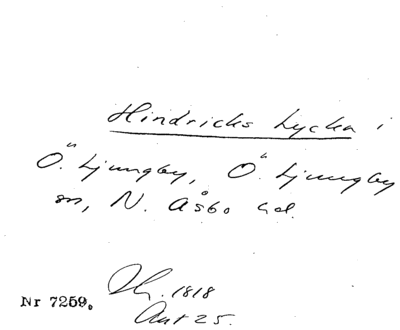 Hindricks Lycka i
Ö. Ljungby, Ö. Ljungby
sn, N. Åsbo hd.
1818
Nr 7259.
Akt 25.